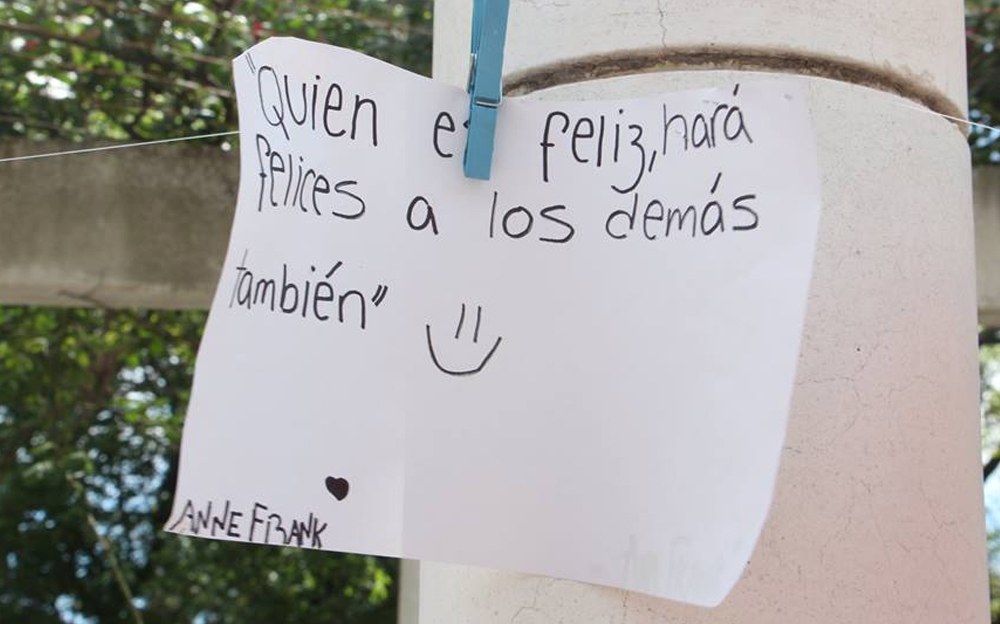 "Quien es feliz, hará
felices a los demás
también"
ANNE FRANK